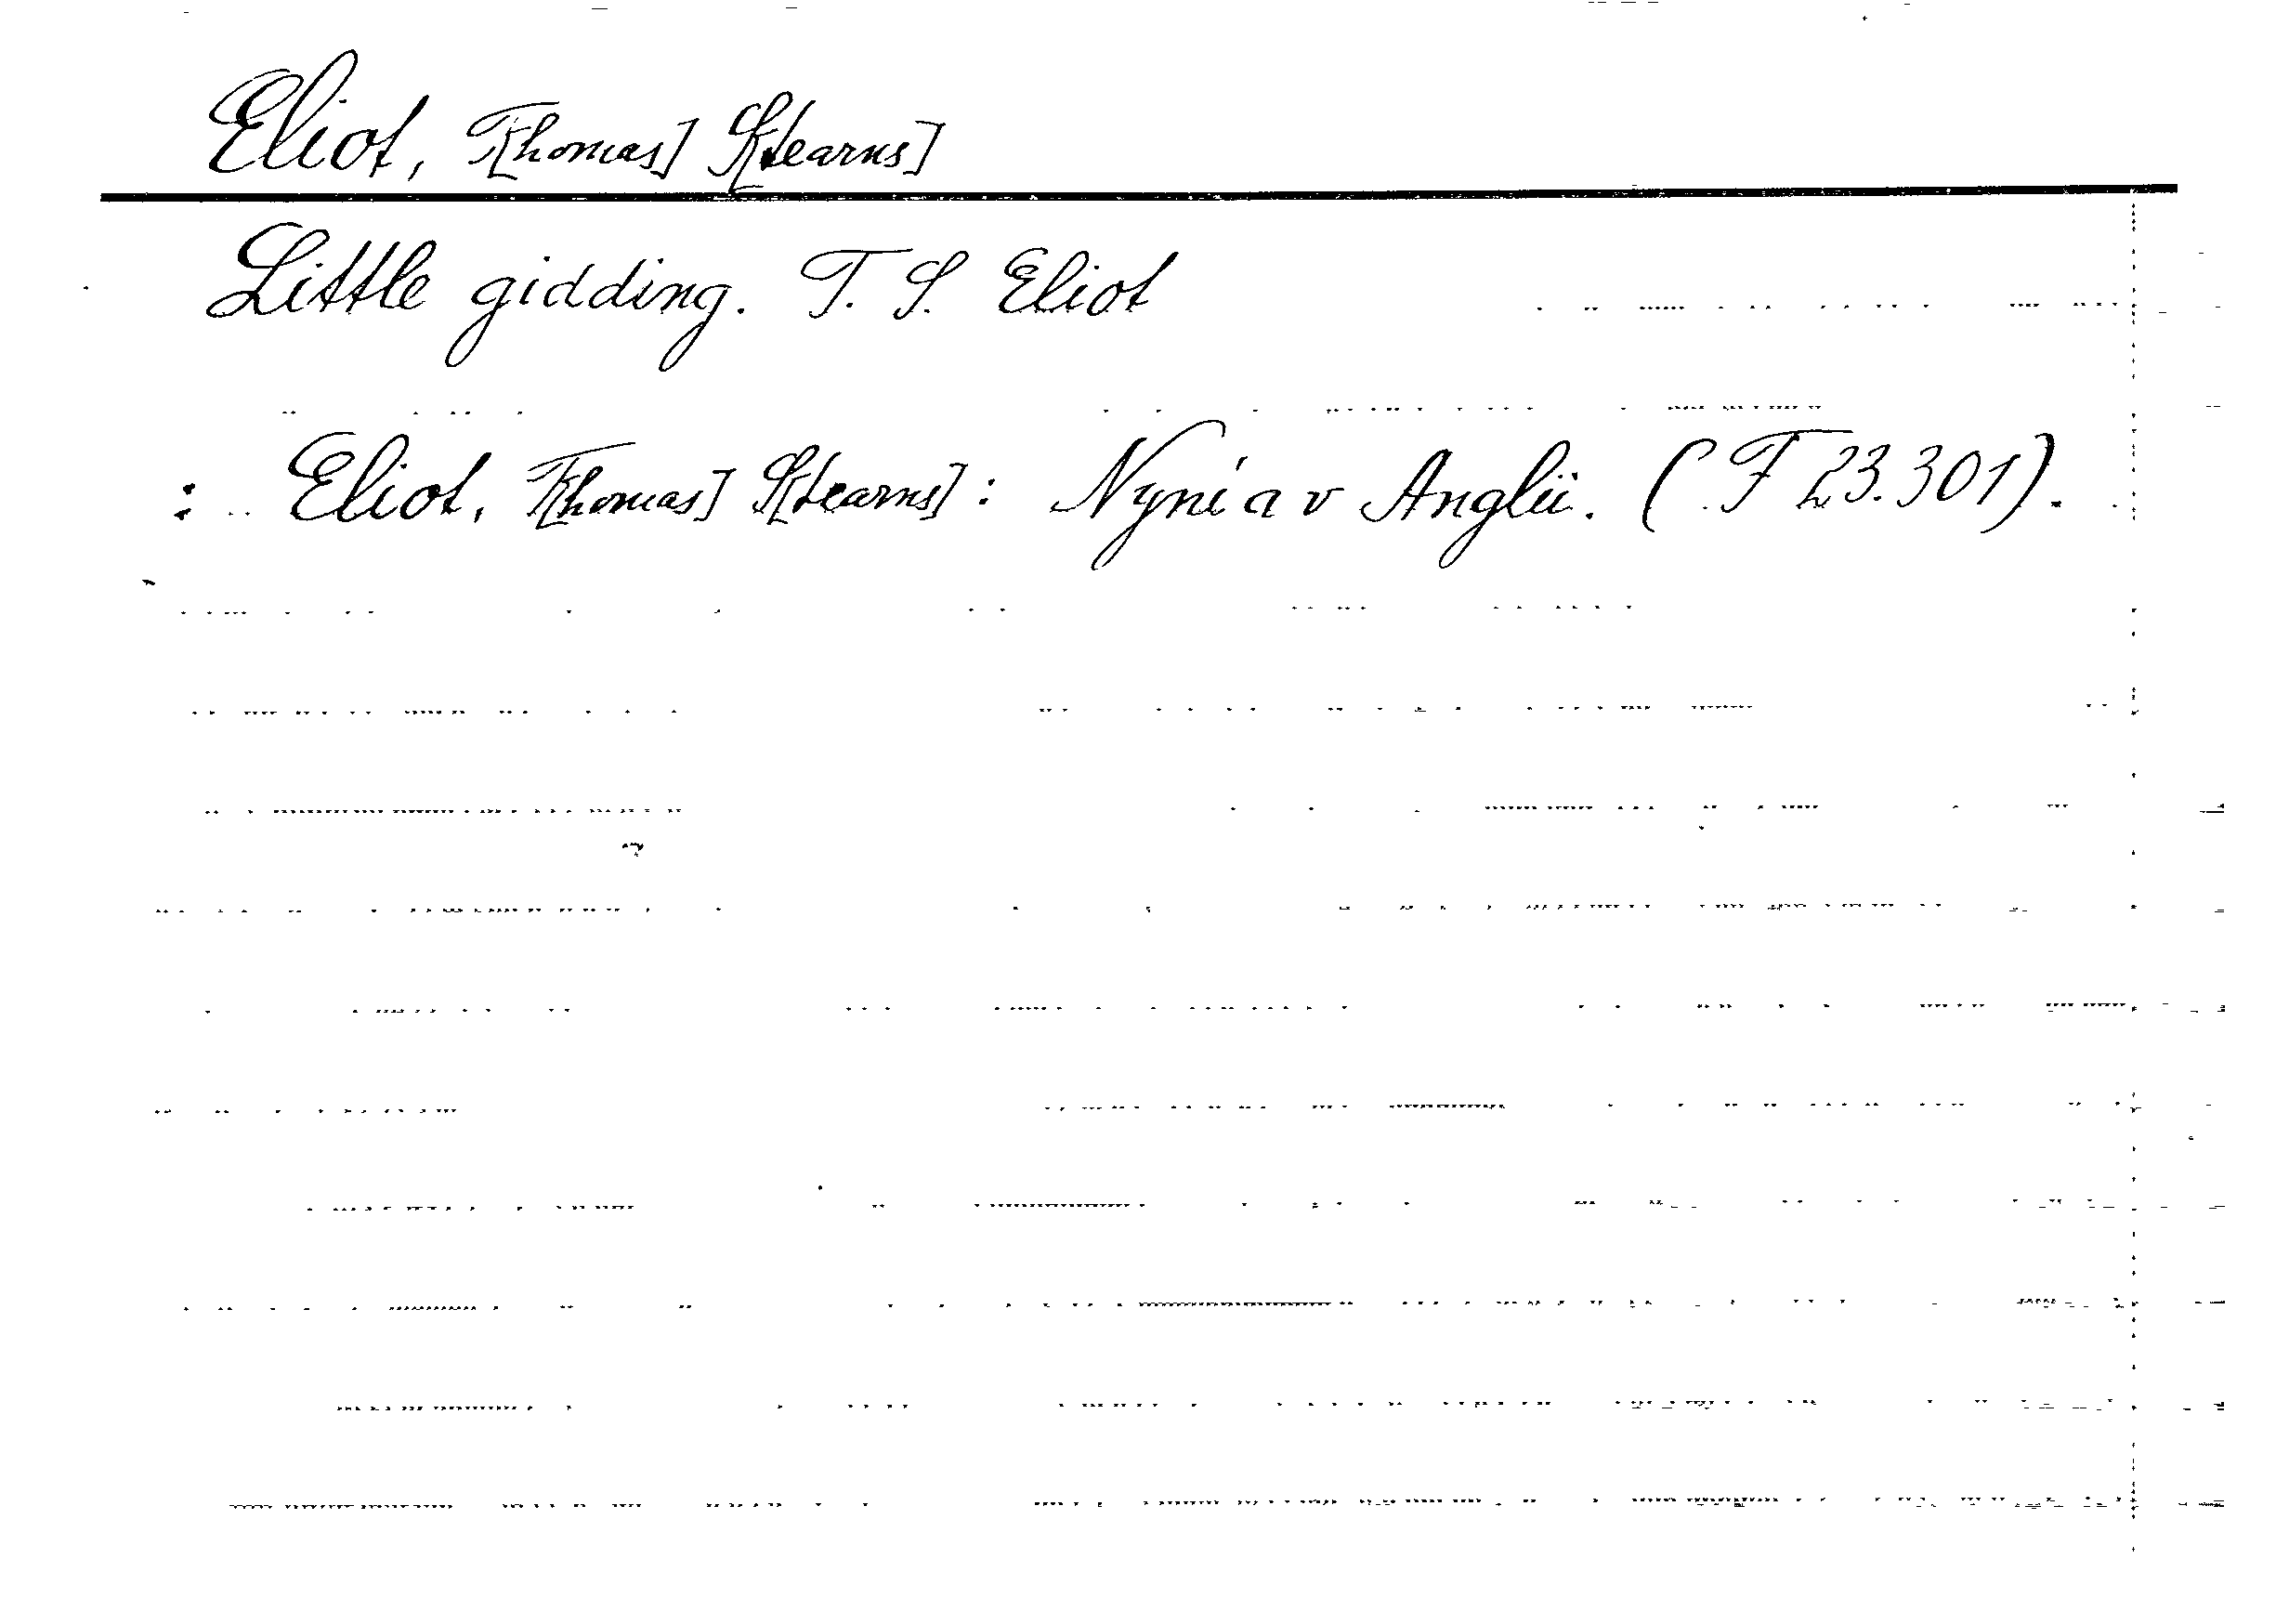 Eliot, T[homas] S[tearns]
Little gidding. T. S. Eliot
: Eliot, T[homas] S[tearns]: Nyní a v Anglii. (F 23.301).